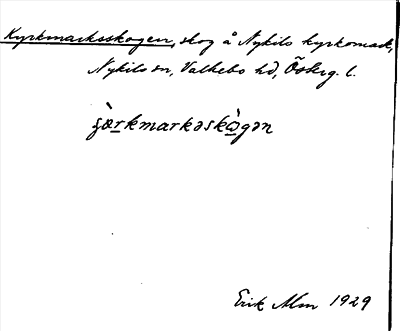 Kyrkmarksskogen, skog å Nykils kyrkomark,
Nykils sn, Valkebo hd, Österg. l.
çæ̀rkmarkəskò̤gən
Erik Alm 1929